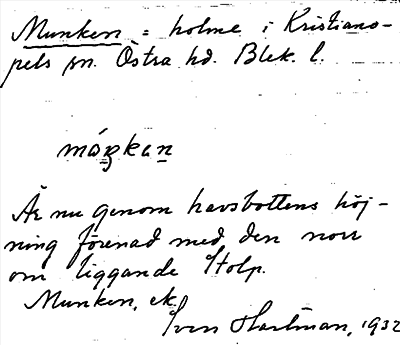 Munken = holme i Kristiano-
pels sn. Östra hd. Blek. l.
måŋkan
Är nu genom havsbottens höj-
ning förenad med den norr
om liggande Stolp.
Munken, ek.
Sven Hartman, 1932